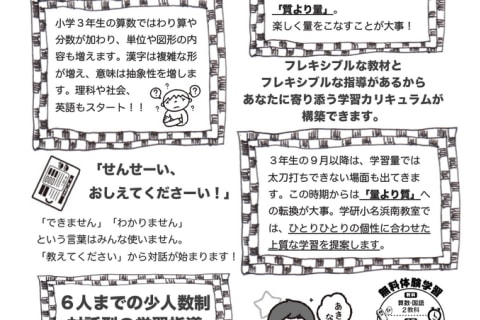 小学３年生の算数ではわり算や
分数が加わり、単位や図形の内
容も増えます。漢字は複雑な形
が増え、意味は抽象性を増しま
す。理科や社会、
英語もスタート！！
「せんせーい、
おしえてくださーい！」
「できません」「わかりません」
という言葉はみんな使いません。
「教えてください」から対話が始まります！
６人までの少人数制
対話型の学習指導
「質より量」。
楽しく量をこなすことが大事！
フレキシブルな教材と
フレキシブルな指導があるから
あなたに寄り添う学習カリキュラムが
構築できます。
３年生の９月以降は、学習量では
太刀打ちできない場面も出てきま
す。この時期からは「量より質」へ
の転換が大事。学研小名浜南教室で
は、ひとりひとりの個性に合わせた
上質な学習を提案します。
あき
な
無料体験学習
無料
算数・国語
２教科